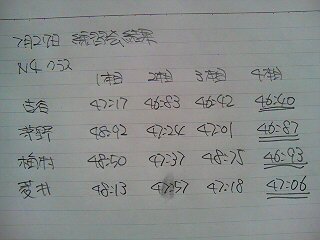 7月27日 練習会結果
N4クラス
1本目 2本目 3本目 4本目
吉谷 47:17 46:83 46:42 46:40
茅野 48:92 47:24 47:01 46:87
48:50 47:37 48:75 46:93
夏井 48:13 47:57 47:18 47:06